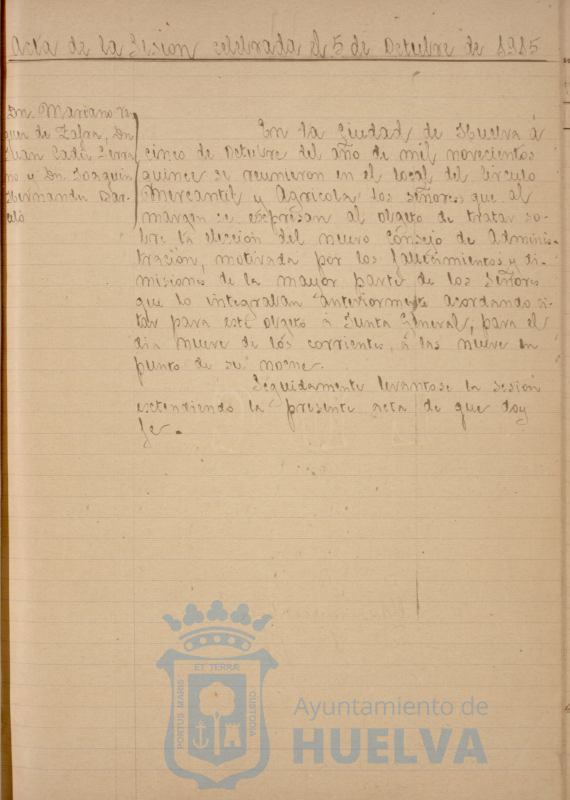 Acta de la Sesion celebrada el 5 de Octubre de 1915
Dn. Mariano Va
quez de Zafra, Dn
Juan Cadiz Serra
no y Dn. Joaquin
Hernandez Bar-
celó
En la Ciudad de Huelva á
cinco de Octubre del año de mil novecientos
quince se reunieron en el local del Circulo
Mercantil y Agricola los señores que al
margen se expresan al objeto de tratar so-
bre la eleccion del nuevo Consejo de Adminis-
tracion, motivada por los fallecimientos y di-
misiones de la mayor parte de los Señores
que lo integraban anteriormente acordando ci-
tar para este objeto á Junta General, para el
dia nueve de los corrientes, á las nueve en
punto de su noche.
Seguidamente levantose la sesion
extendiendo la presente acta de que doy
fe.
ET TERRÆ
PORTUS MARIS
CUSTODIA
Ayuntamiento de
HUELVA